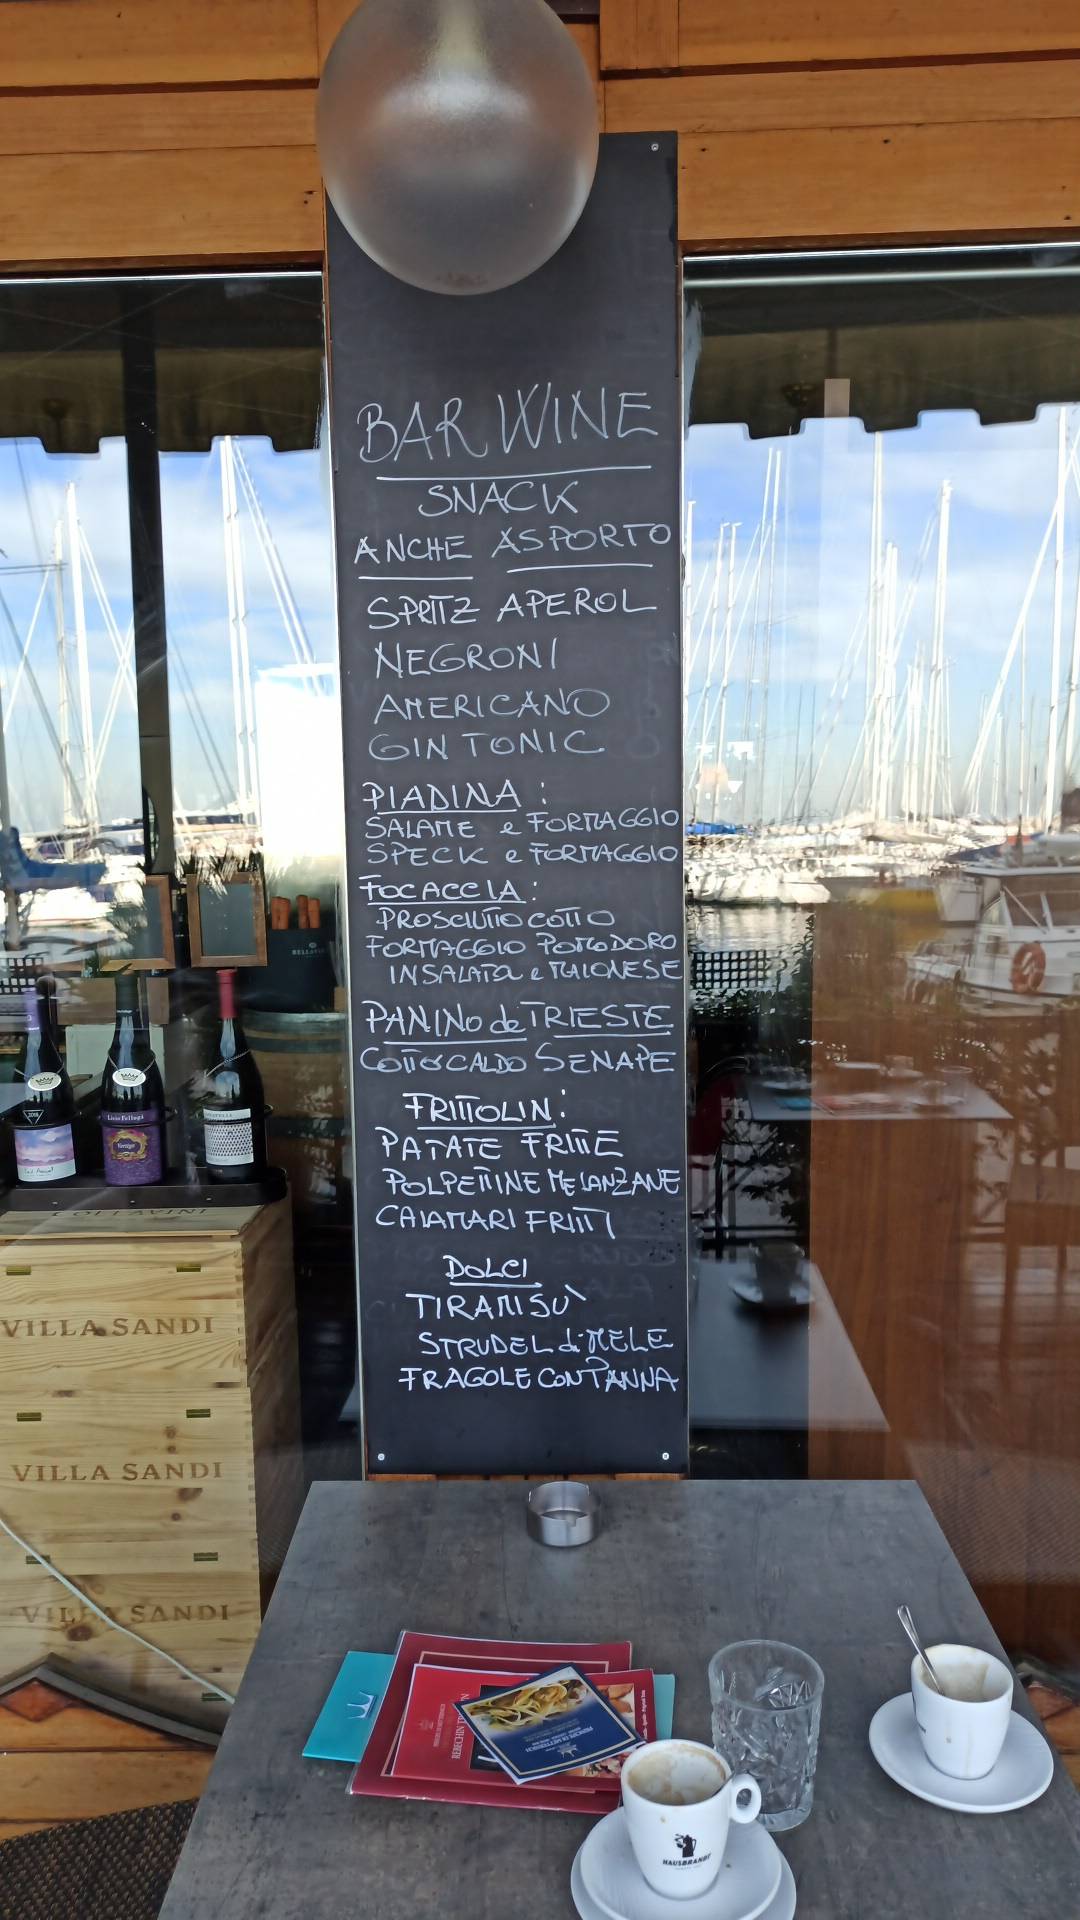 BAR WINE
SNACK
ANCHE ASPORTO
SPRITZ APEROL
NEGRONI
AMERICANO
GIN TONIC
PIADINA :
SALAME e FORMAGGIO
SPECK e FORMAGGIO
FOCACCIA :
PROSCIUTTO COTTO
FORMAGGIO POMODORO
INSALATA e MAIONESE
PANINO de TRIESTE
COTTO CALDO SENAPE
FRITTOLIN :
PATATE FRITTE
POLPETTINE MELANZANE
CALAMARI FRITTI
DOLCI
TIRAMISÙ
STRUDEL di MELE
FRAGOLE CON PANNA
Livio Felluga
Vertigo
2018
COLLAVINI
VILLA SANDI
VILLA SANDI
VILLA SANDI
PRINCIPE DI METTERNICH
HAUSBRANDT